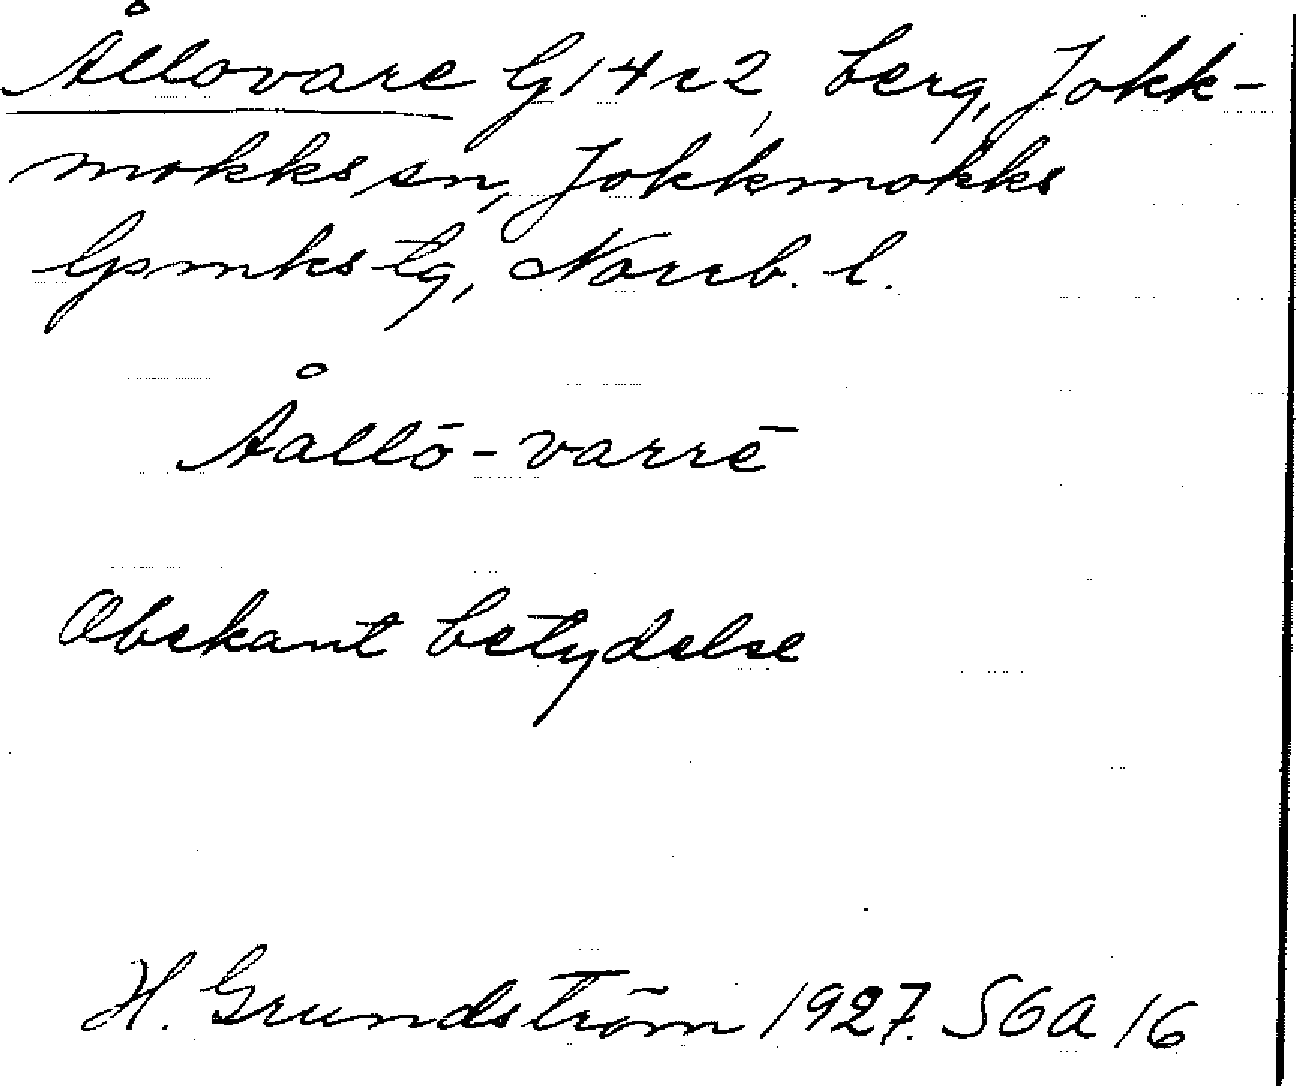 Ållovare G14c2, berg, Jokk-
mokks sn, Jokkmokks
lpmks tg, Norrb. l.
Åallō-varrē
Obekant betydelse
H. Grundström 1927. SGA 16